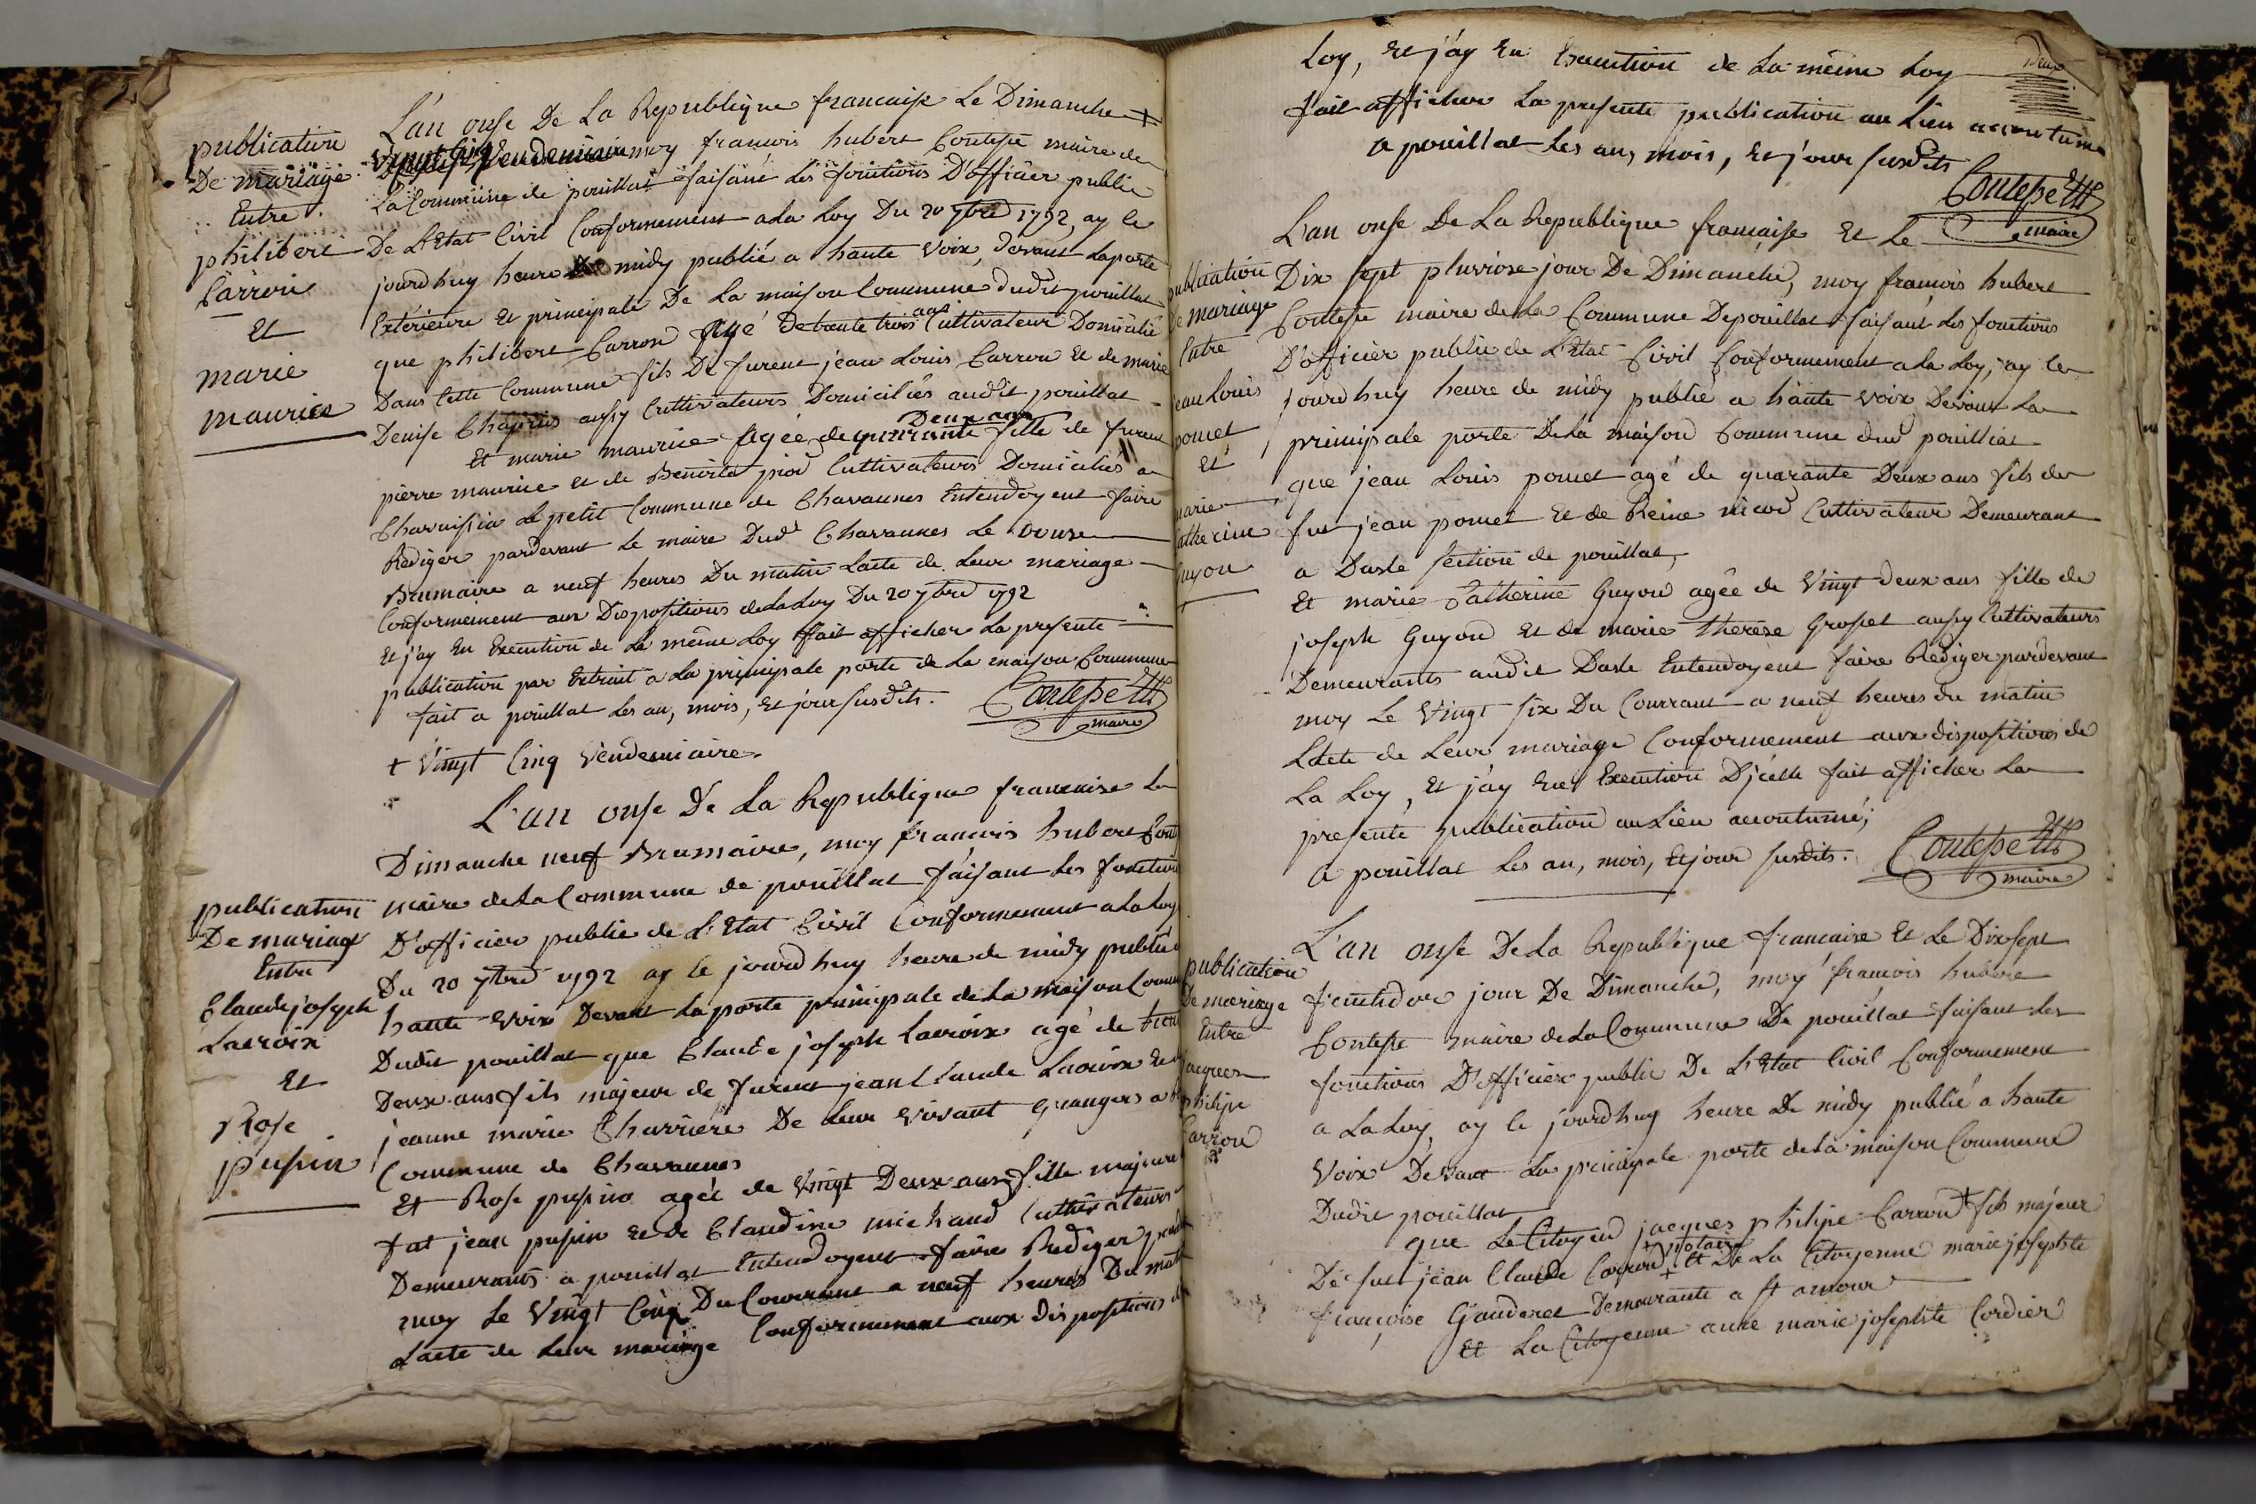 publication
De mariage
Entre
philibert
Carron
Et
marie
maurice
L'an onse De La Republique francaise Le Dimanche +
moy francois hubert Contesse maire de
La Commune de pouillat faisant les fonctions D'officier public
De L'Etat Civil Conformement a La Loy Du 20 7bre 1792, ay le
jourdhuy heure de midy publié a haute voix, devant La porte
Extérieure Et principale De La maison Commune dudit pouillat
que philibert Carron agé de trente trois ans Cultivateur Domicilié
Dans Cette Commune fils De furent jean Louis Carron Et de marie
Denise Chapuis aussy Cultivateurs Domiciliés audit pouillat
Et marie maurice agée de quarante Deux ans fille de furent
pierre maurice et de Benoite piod Cultivateurs Domiciliés a
Charnisia Le petit Commune de Chavannes Entendoyent faire
Rediger pardevant Le maire Dud Chavannes Le Douze
Brumaire a neuf heures Du matin Lacte de Leur mariage
Conformement aux Dispositions de La Loy Du 20 7bre 1792
Et j'ay En Execution de La même Loy fait afficher La presente
publication par Extrait a La principale porte de La maison Commune
fait a pouillat Les an, mois, Et jour susdits.
Contesse
maire
+ Vingt Cinq Vendemiaire
publication
De mariage
Entre
Claude joseph
Lacroix
Et
Rose
pupin
L'an onse De La Republique francaise Le
Dimanche neuf Brumaire, moy francois hubert Cont
maire de La Commune de pouillat faisant Les fonction
D'officier public de L'Etat Civil Conformement a La Loy
Du 20 7bre 1792 ay le jourdhuy heure de midy publié
haute voix Devant La porte principale de La maison Commu
Dudit pouillat que Claude joseph Lacroix agé de tren
Deux ans fils majeur de furent jean Claude Lacroix Et
jeanne marie Charriére De Leur vivant grangers a
Commune de Chavannes
Et Rose pupin agée de Vingt Deux ans fille majeure
fut jean pupin et de Claudine michaud Cultivateurs
Demeurants a pouillat Entendoyent faire Rediger parde
moy Le Vingt Cinq Du Courant a neuf heures Du mat
Lacte de Leur mariage Conformement aux Dispositions
Deux
Loy, Et j'ay En Execution de La même Loy
fait afficher La presente publication au Lieu accoutumé
a pouillat Les an, mois, Et jour susdits
Contesse
maire
publication
De mariage
Entre
jean Louis
pomet
Et
marie
Catherine
Guyon
L'an onse De La Republique francaise Et Le
Dix sept pluviose jour De Dimanche, moy francois hubert
Contesse maire de La Commune De pouillat faisant Les fonctions
D'officier public de L'Etat Civil Conformement a La Loy, ay le
jourdhuy heure de midy publié a haute voix Devant La
principale porte De La maison Commune dud pouillat
que jean Louis pomet agé de quarante Deux ans fils de
fut jean pomet Et de Reine nicod Cultivateur Demeurant
a Dasle section de pouillat,
Et marie Catherine Guyon agée de Vingt deux ans fille de
joseph Guyon Et de marie therese Grosset aussy Cultivateurs
Demeurants audit Dasle Entendoyent faire Rediger pardevant
moy Le Vingt six Du Courrant a neuf heures du matin
Lacte de Leur mariage Conformement aux dispositions de
La Loy, Et j'ay En Execution D'jcelle fait afficher La
presente publication au Lieu accoutumé;
a pouillat Les an, mois, Et jour susdits.
Contesse
maire
publication
De mariage
Entre
jacques
philipe
Carron
L'an onse De La Republique francaise Et Le Dix sept
jour De Dimanche, moy francois hubert
Contesse maire de La Commune De pouillat faisant Les
fonctions D'officier public De L'Etat Civil Conformement
a La Loy, ay le jourdhuy heure De midy publié a haute
voix Devant La principale porte de La maison Commune
Dudit pouillat
que Le Citoyen jacques philipe Carron + fils majeur
+ notaire
De fut jean Claude Carron + Et De La Citoyenne marie josephte
françoise Gauderet Demeurante a St amour
Et La Citoyenne anne marie josephte Cordier